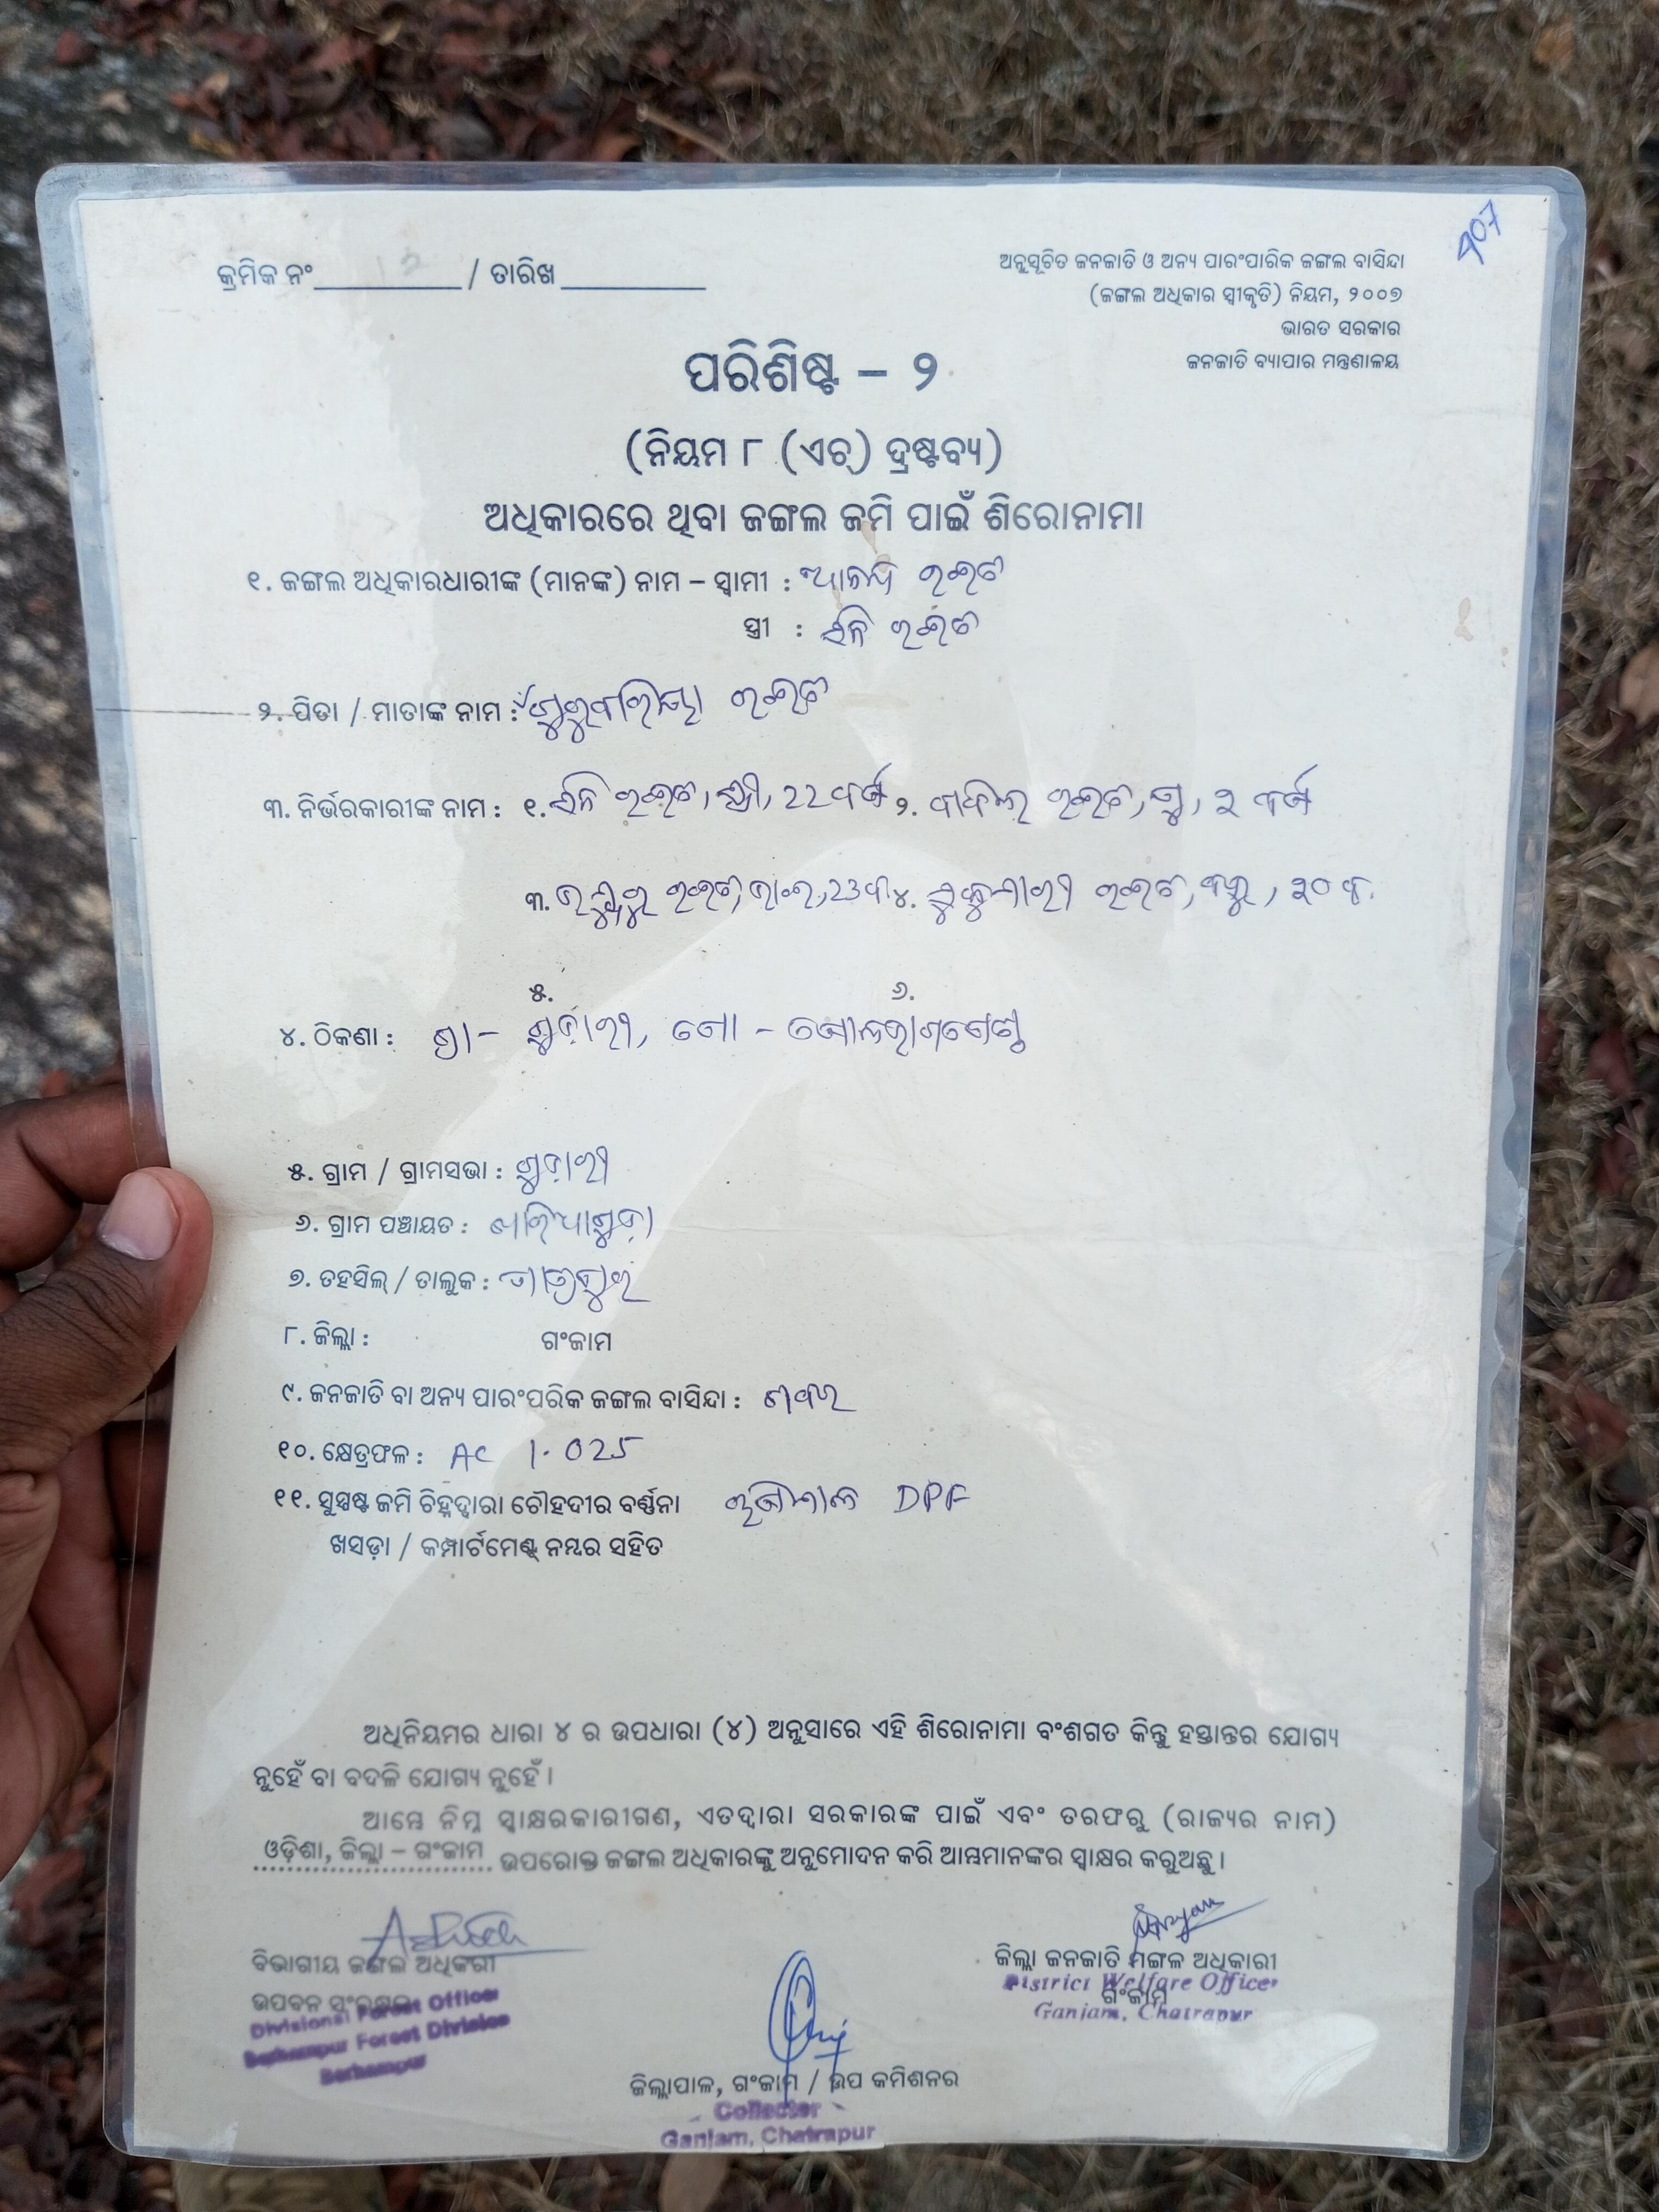 907
କ୍ରମିକ ନଂ __________ / ତାରିଖ __________
ଅନୁସୂଚିତ ଜନଜାତି ଓ ଅନ୍ୟ ପାରଂପାରିକ ଜଙ୍ଗଲ ବାସିନ୍ଦା
(ଜଙ୍ଗଲ ଅଧିକାର ସ୍ୱୀକୃତି) ନିୟମ, ୨୦୦୭
ଭାରତ ସରକାର
ଜନଜାତି ବ୍ୟାପାର ମନ୍ତ୍ରଣାଳୟ
ପରିଶିଷ୍ଟ – ୨
(ନିୟମ ୮ (ଏଚ୍) ଦ୍ରଷ୍ଟବ୍ୟ)
ଅଧିକାରରେ ଥିବା ଜଙ୍ଗଲ ଜମି ପାଇଁ ଶିରୋନାମା
୧. ଜଙ୍ଗଲ ଅଧିକାରଧାରୀଙ୍କ (ମାନଙ୍କ) ନାମ – ସ୍ୱାମୀ : ରଇତ
ସ୍ତ୍ରୀ : ରଇତ
୨. ପିତା / ମାତାଙ୍କ ନାମ : ରଇତ
୩. ନିର୍ଭରକାରୀଙ୍କ ନାମ : ୧. ରଇତ, ସ୍ତ୍ରୀ, 22 ବର୍ଷ ୨. ରଇତ, ପୁ, ୨ ବର୍ଷ
୩. ରଇତ, 23 ବ ୪. ରଇତ, ୨୦ ବ.
୫. ୬.
୪. ଠିକଣା : ଗ୍ରା -
୫. ଗ୍ରାମ / ଗ୍ରାମସଭା :
୬. ଗ୍ରାମ ପଞ୍ଚାୟତ :
୭. ତହସିଲ୍ / ତାଲୁକ : ପାତ୍ରପୁର
୮. ଜିଲ୍ଲା : ଗଂଜାମ
୯. ଜନଜାତି ବା ଅନ୍ୟ ପାରଂପରିକ ଜଙ୍ଗଲ ବାସିନ୍ଦା : ଶବର
୧୦. କ୍ଷେତ୍ରଫଳ : AC 1.025
୧୧. ସୁସ୍ପଷ୍ଟ ଜମି ଚିହ୍ନଦ୍ୱାରା ଚୌହଦୀର ବର୍ଣ୍ଣନା DPF
ଖସଡ଼ା / କମ୍ପାର୍ଟମେଣ୍ଟ୍ ନମ୍ବର ସହିତ
ଅଧିନିୟମର ଧାରା ୪ ର ଉପଧାରା (୪) ଅନୁସାରେ ଏହି ଶିରୋନାମା ବଂଶଗତ କିନ୍ତୁ ହସ୍ତାନ୍ତର ଯୋଗ୍ୟ
ନୁହେଁ ବା ବଦଳି ଯୋଗ୍ୟ ନୁହେଁ ।
ଆମ୍ଭେ ନିମ୍ନ ସ୍ୱାକ୍ଷରକାରୀଗଣ, ଏତଦ୍ୱାରା ସରକାରଙ୍କ ପାଇଁ ଏବଂ ତରଫରୁ (ରାଜ୍ୟର ନାମ)
ଓଡ଼ିଶା, ଜିଲ୍ଲା – ଗଂଜାମ ଉପରୋକ୍ତ ଜଙ୍ଗଲ ଅଧିକାରଙ୍କୁ ଅନୁମୋଦନ କରି ଆମ୍ଭମାନଙ୍କର ସ୍ୱାକ୍ଷର କରୁଅଛୁ ।
ବିଭାଗୀୟ ଜଙ୍ଗଲ ଅଧିକାରୀ
ଉପବନ ସଂରକ୍ଷକ
Divisional Forest Officer
Berhampur Forest Division
Berhampur
ଜିଲ୍ଲା ଜନଜାତି ମଙ୍ଗଳ ଅଧିକାରୀ
ଗଂଜାମ
District Welfare Officer
Ganjam, Chatrapur
ଜିଲ୍ଲାପାଳ, ଗଂଜାମ / ଉପ କମିଶନର
Collector
Ganjam, Chatrapur